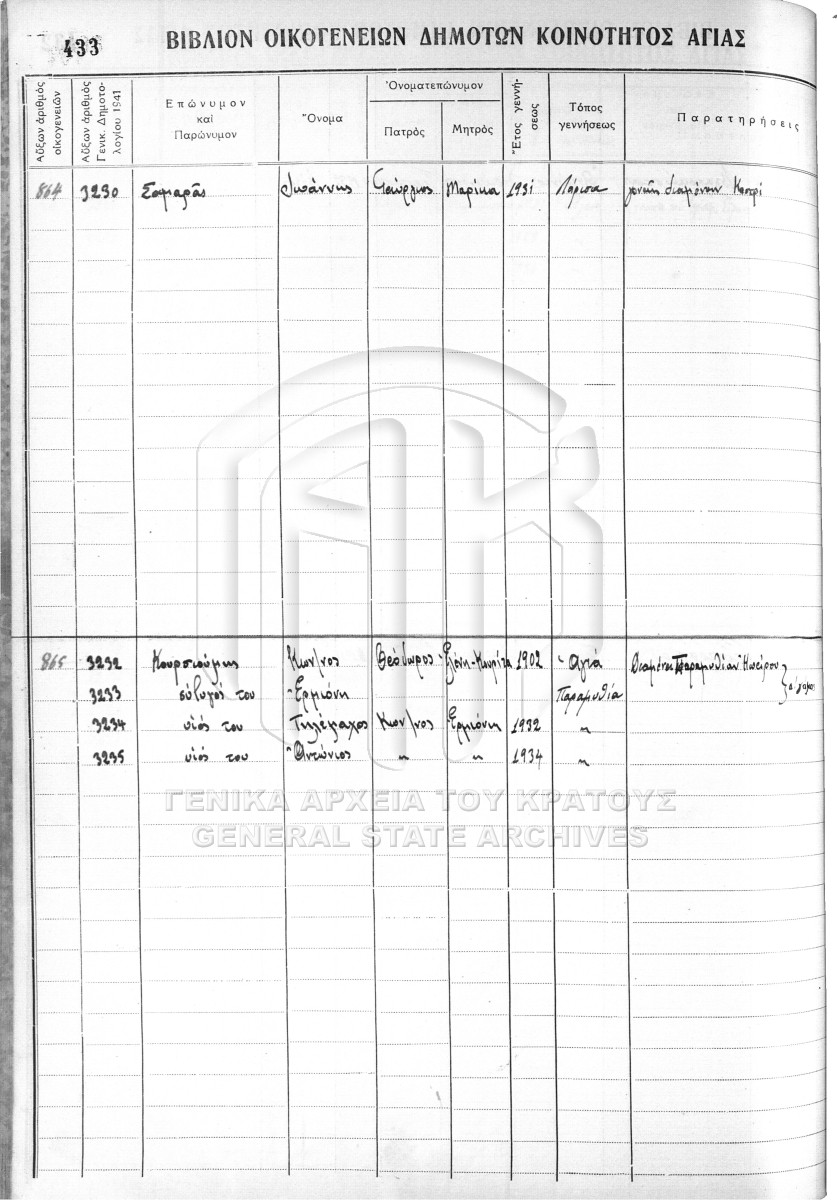 433 ΒΙΒΛΙΟΝ ΟΙΚΟΓΕΝΕΙΩΝ ΔΗΜΟΤΩΝ ΚΟΙΝΟΤΗΤΟΣ ΑΓΙΑΣ
Αὔξων ἀριθμὸς οἰκογενειῶν
Αὔξων ἀριθμὸς Γενικ. Δημοτολογίου 1941
Ἐπώνυμον καὶ Παρώνυμον
Ὄνομα
Ὀνοματεπώνυμον
Πατρὸς Μητρὸς
Ἔτος γεννήσεως
Τόπος γεννήσεως
Παρατηρήσεις
864 3230 Ἰωάννης Γεώργιος Μαρίκα 1931 Λάρισα
865 3232 Κουρσιούμης Κων/νος Θεόδωρος 1902 Ἁγιά
3233 σύζυγός του Ἑρμιόνη Παραμυθία
3234 υἱός του Τηλέμαχος Κων/νος Ἑρμιόνη 1932 "
3235 υἱός του Ἀντώνιος " " 1934 "
ΓΕΝΙΚΑ ΑΡΧΕΙΑ ΤΟΥ ΚΡΑΤΟΥΣ
GENERAL STATE ARCHIVES